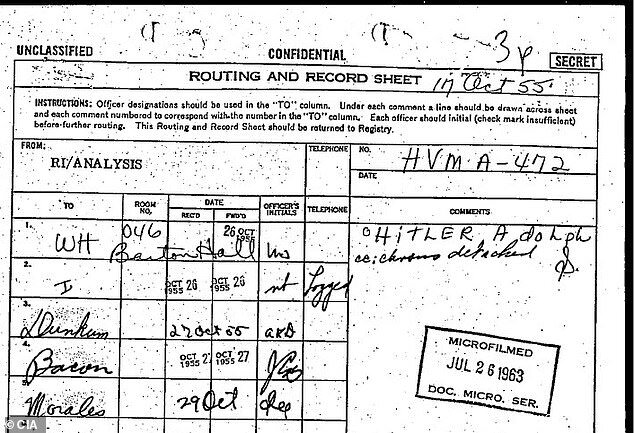 3p
UNCLASSIFIED CONFIDENTIAL SECRET
ROUTING AND RECORD SHEET 17 Oct 55
INSTRUCTIONS: Officer designations should be used in the "TO" column. Under each comment a line should be drawn across sheet
and each comment numbered to correspond with the number in the "TO" column. Each officer should initial (check mark insufficient)
before further routing. This Routing and Record Sheet should be returned to Registry.
FROM: TELEPHONE NO. HVM.A-472
RI/ANALYSIS DATE
TO ROOM NO. DATE OFFICER'S INITIALS TELEPHONE COMMENTS
REC'D FWD'D
1. WH 046 26 OCT 195 HITLER Adolph
Barton Hall detached
2. I OCT 26 1955 OCT 26 1955 Logged
3. Dunkum 27 Oct 55
4. Bacon OCT 27 1955 OCT 27 1955
5. Morales 29 Oct
MICROFILMED
JUL 26 1963
DOC. MICRO. SER.
© CIA